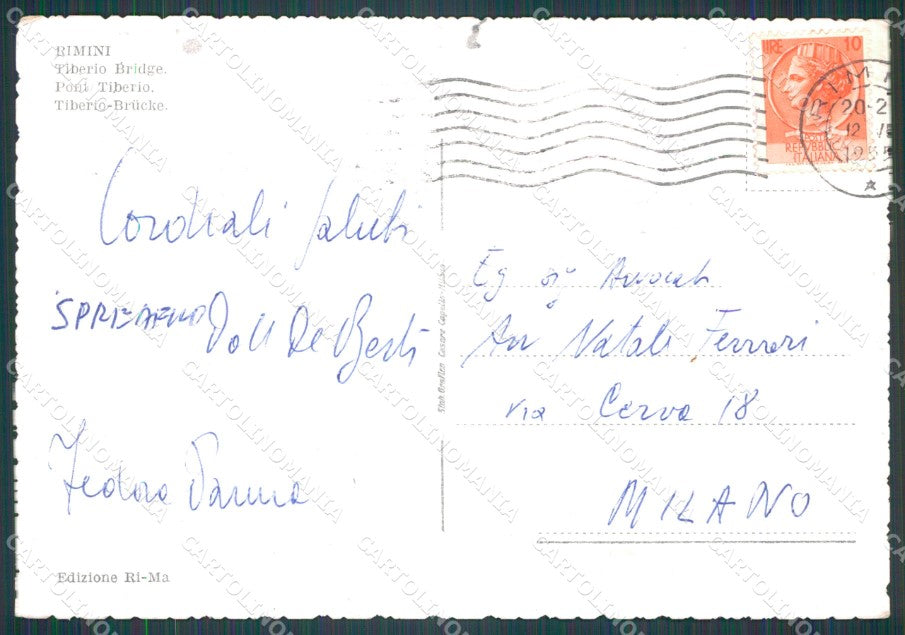 RIMINI
Tiberio Bridge.
Pont Tiberio.
Tiberio-Brücke.
LIRE 10
POSTE
REPVBBLICA
ITALIANA
RIMINI
20-2
12
1955
Cordiali saluti
Dott De Berti
Eg sig Avvocato
Avv Natale Ferrari
via Cerva 18
MILANO
Edizione Ri-Ma
CARTOLINOMANIA